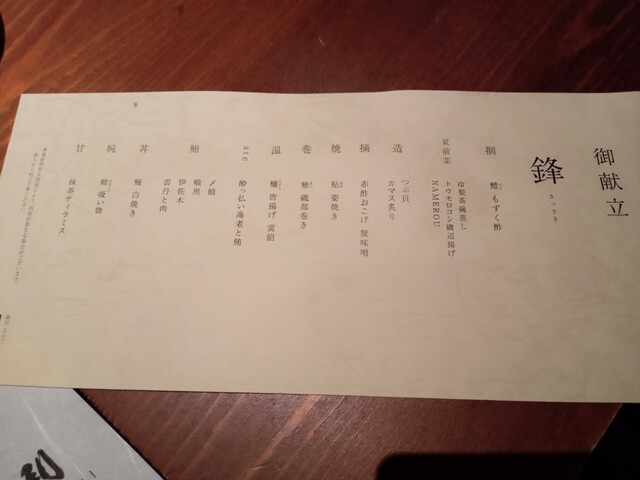 御献立
鋒
きっさき
掴
鱧 もずく酢
夏前菜
燻製茶碗蒸し
トウモロコシ磯辺揚げ
NAMEROU
造
つぶ貝
カマス炙り
摘
赤酢おこげ 蟹味噌
焼
鮎 姿焼き
巻
鯵 磯部巻き
温
唐揚げ
鮨
〆鯖
喉黒
伊佐木
雲丹と肉
ate
酔っ払い海老と鮑
丼
鰻 白焼き
椀
蛤 吸い物
甘
抹茶ティラミス